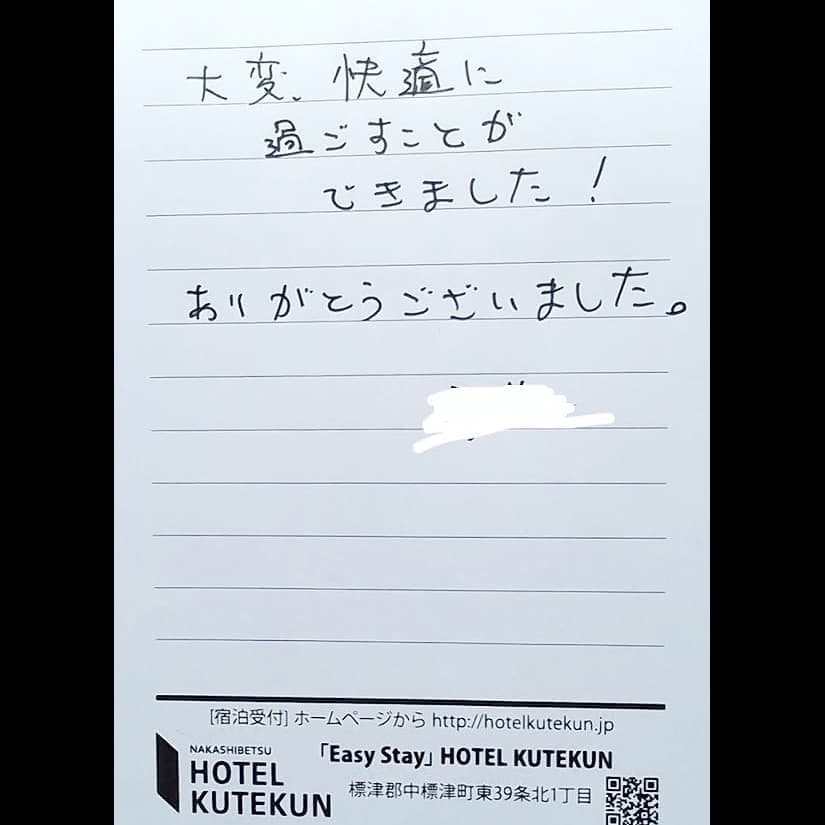 大変、快適に
過ごすことが
できました！
ありがとうございました。
[宿泊受付] ホームページから http://hotelkutekun.jp
「Easy Stay」 HOTEL KUTEKUN
NAKASHIBETSU
HOTEL
KUTEKUN
標津郡中標津町東39条北1丁目